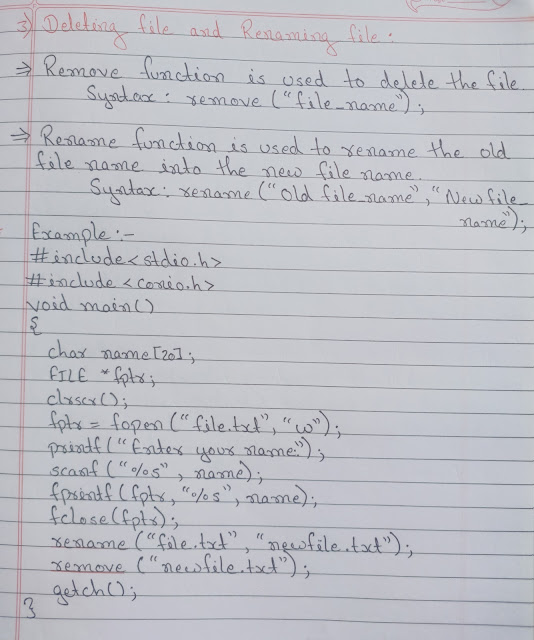 3) Deleting file and Renaming file :
⇒ Remove function is used to delete the file.
Syntax : remove ("file_name");
⇒ Rename function is used to rename the old
file name into the new file name.
Syntax : rename ("Old file_name", "New file_
name");
Example :-
#include<stdio.h>
#include <conio.h>
void main()
{
char name[20];
FILE *fptr;
clrscr();
fptr = fopen ("file.txt", "w");
printf ("Enter your name:");
scanf ("%s", name);
fprintf (fptr, "%s", name);
fclose(fptr);
rename ("file.txt", "newfile.txt");
remove ("newfile.txt");
getch();
}